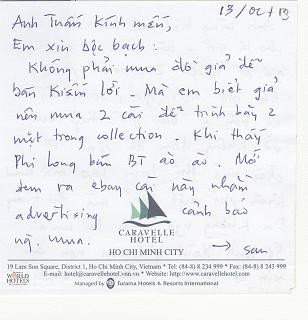 13/Oct
Anh Tuấn kính mến,
Em xin bộc bạch:
Không phải mua đồ giả để
bán kiếm lời. Mà em biết giả
nên mua 2 cái để trình bày 2
mặt trong collection. Khi thấy
Phi Long bán BT ào ào. Mới
đem ra ebay cái này nhằm
advertising cảnh báo
ng. mua.
→ sau
CARAVELLE
HOTEL
HO CHI MINH CITY
19 Lam Son Square, District 1, Ho Chi Minh City, Vietnam * Tel: (84-8) 8 234 999 * Fax: (84-8) 8 243 999
E-mail: hotel@caravellehotel.vnn.vn * Website: http://www.caravellehotel.com
WORLD
HOTELS
Managed by Furama Hotels & Resorts International